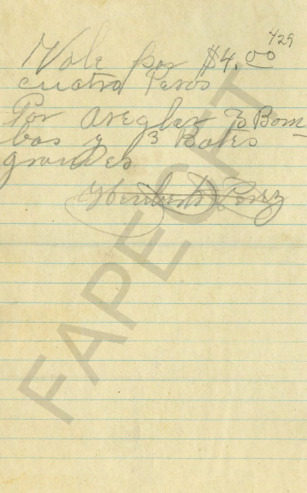 429
Vale por $4.00
cuatro Pesos
Por areglar Bom-
bos y 3 Botes
grandes
Perez
FAPECFT